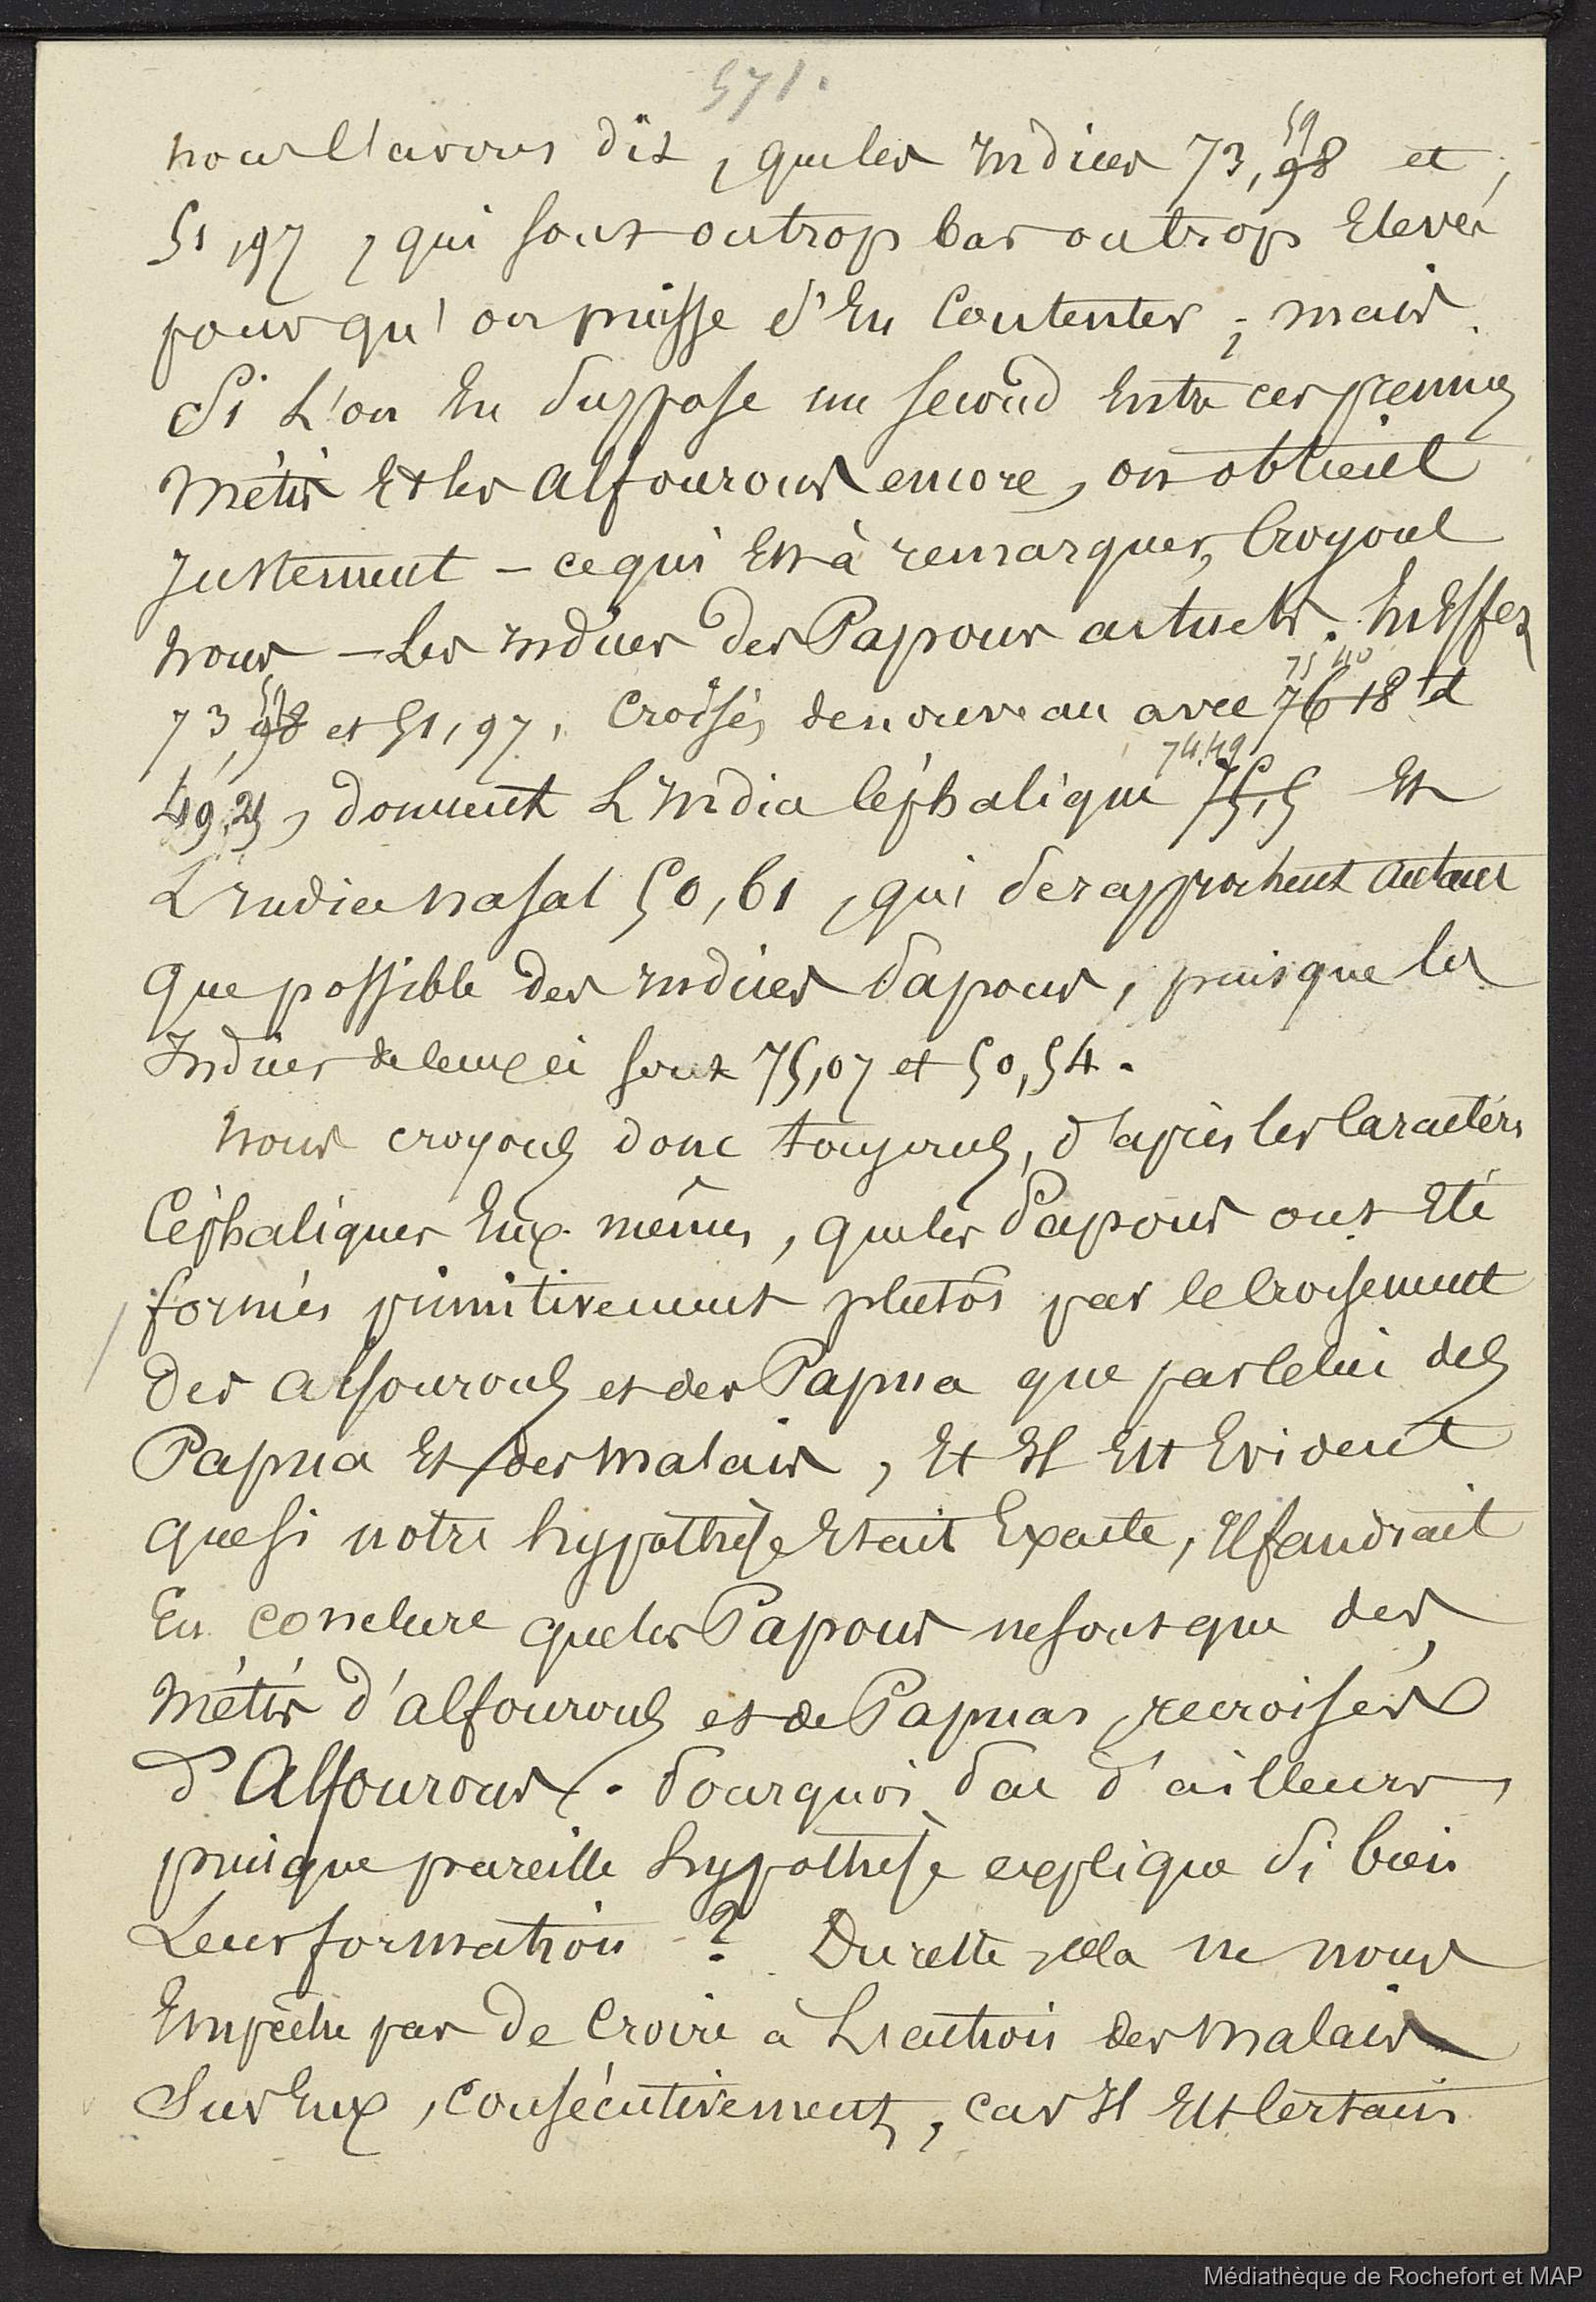 571.
nous l'avons dit, que les Indices 73,59 98 et,
51,97, qui sont ou trop bas ou trop Elevés
pour qu'on puisse s'En Contenter ; mais.
Si L'on En Suppose un second Entre ces premiers
Métis Et les Alfourous encore, on obtient
Justement – ce qui Est à remarquer, Croyons
nous – Les Indices des Papous actuels. En Effet
73,59 98 et 51,97, Croisés de nouveau avec 75 40 76 18 et
49,25, donnent L'Indice Céphalique 74,49 75,5 Et
L'Indice nasal 50,61, qui se rapprochent autant
que possible des Indices Papous, puisque les
Indices de ceux ci sont 75,07 et 50,54.
Nous croyons donc toujours, d'après les Caractères
Céphaliques Eux mêmes, que les Papous ont Eté
formés primitivement plutôt par le Croisement
des Alfourous et des Papua que par Celui des
Papua Et des Malais, Et Il Est Evident
que si notre hypothèse Etait Exacte, Il faudrait
En conclure que les Papous ne sont que des
Métis d'alfourous et de Papuas, recroisés
d'Alfourous. Pourquoi pas d'ailleurs,
puisque pareille hypothèse explique si bien
Leur formation ? Du reste, cela ne nous
Empêche pas de Croire à L'action des Malais
Sur Eux, Consécutivement, car Il Est Certain
Médiathèque de Rochefort et MAP